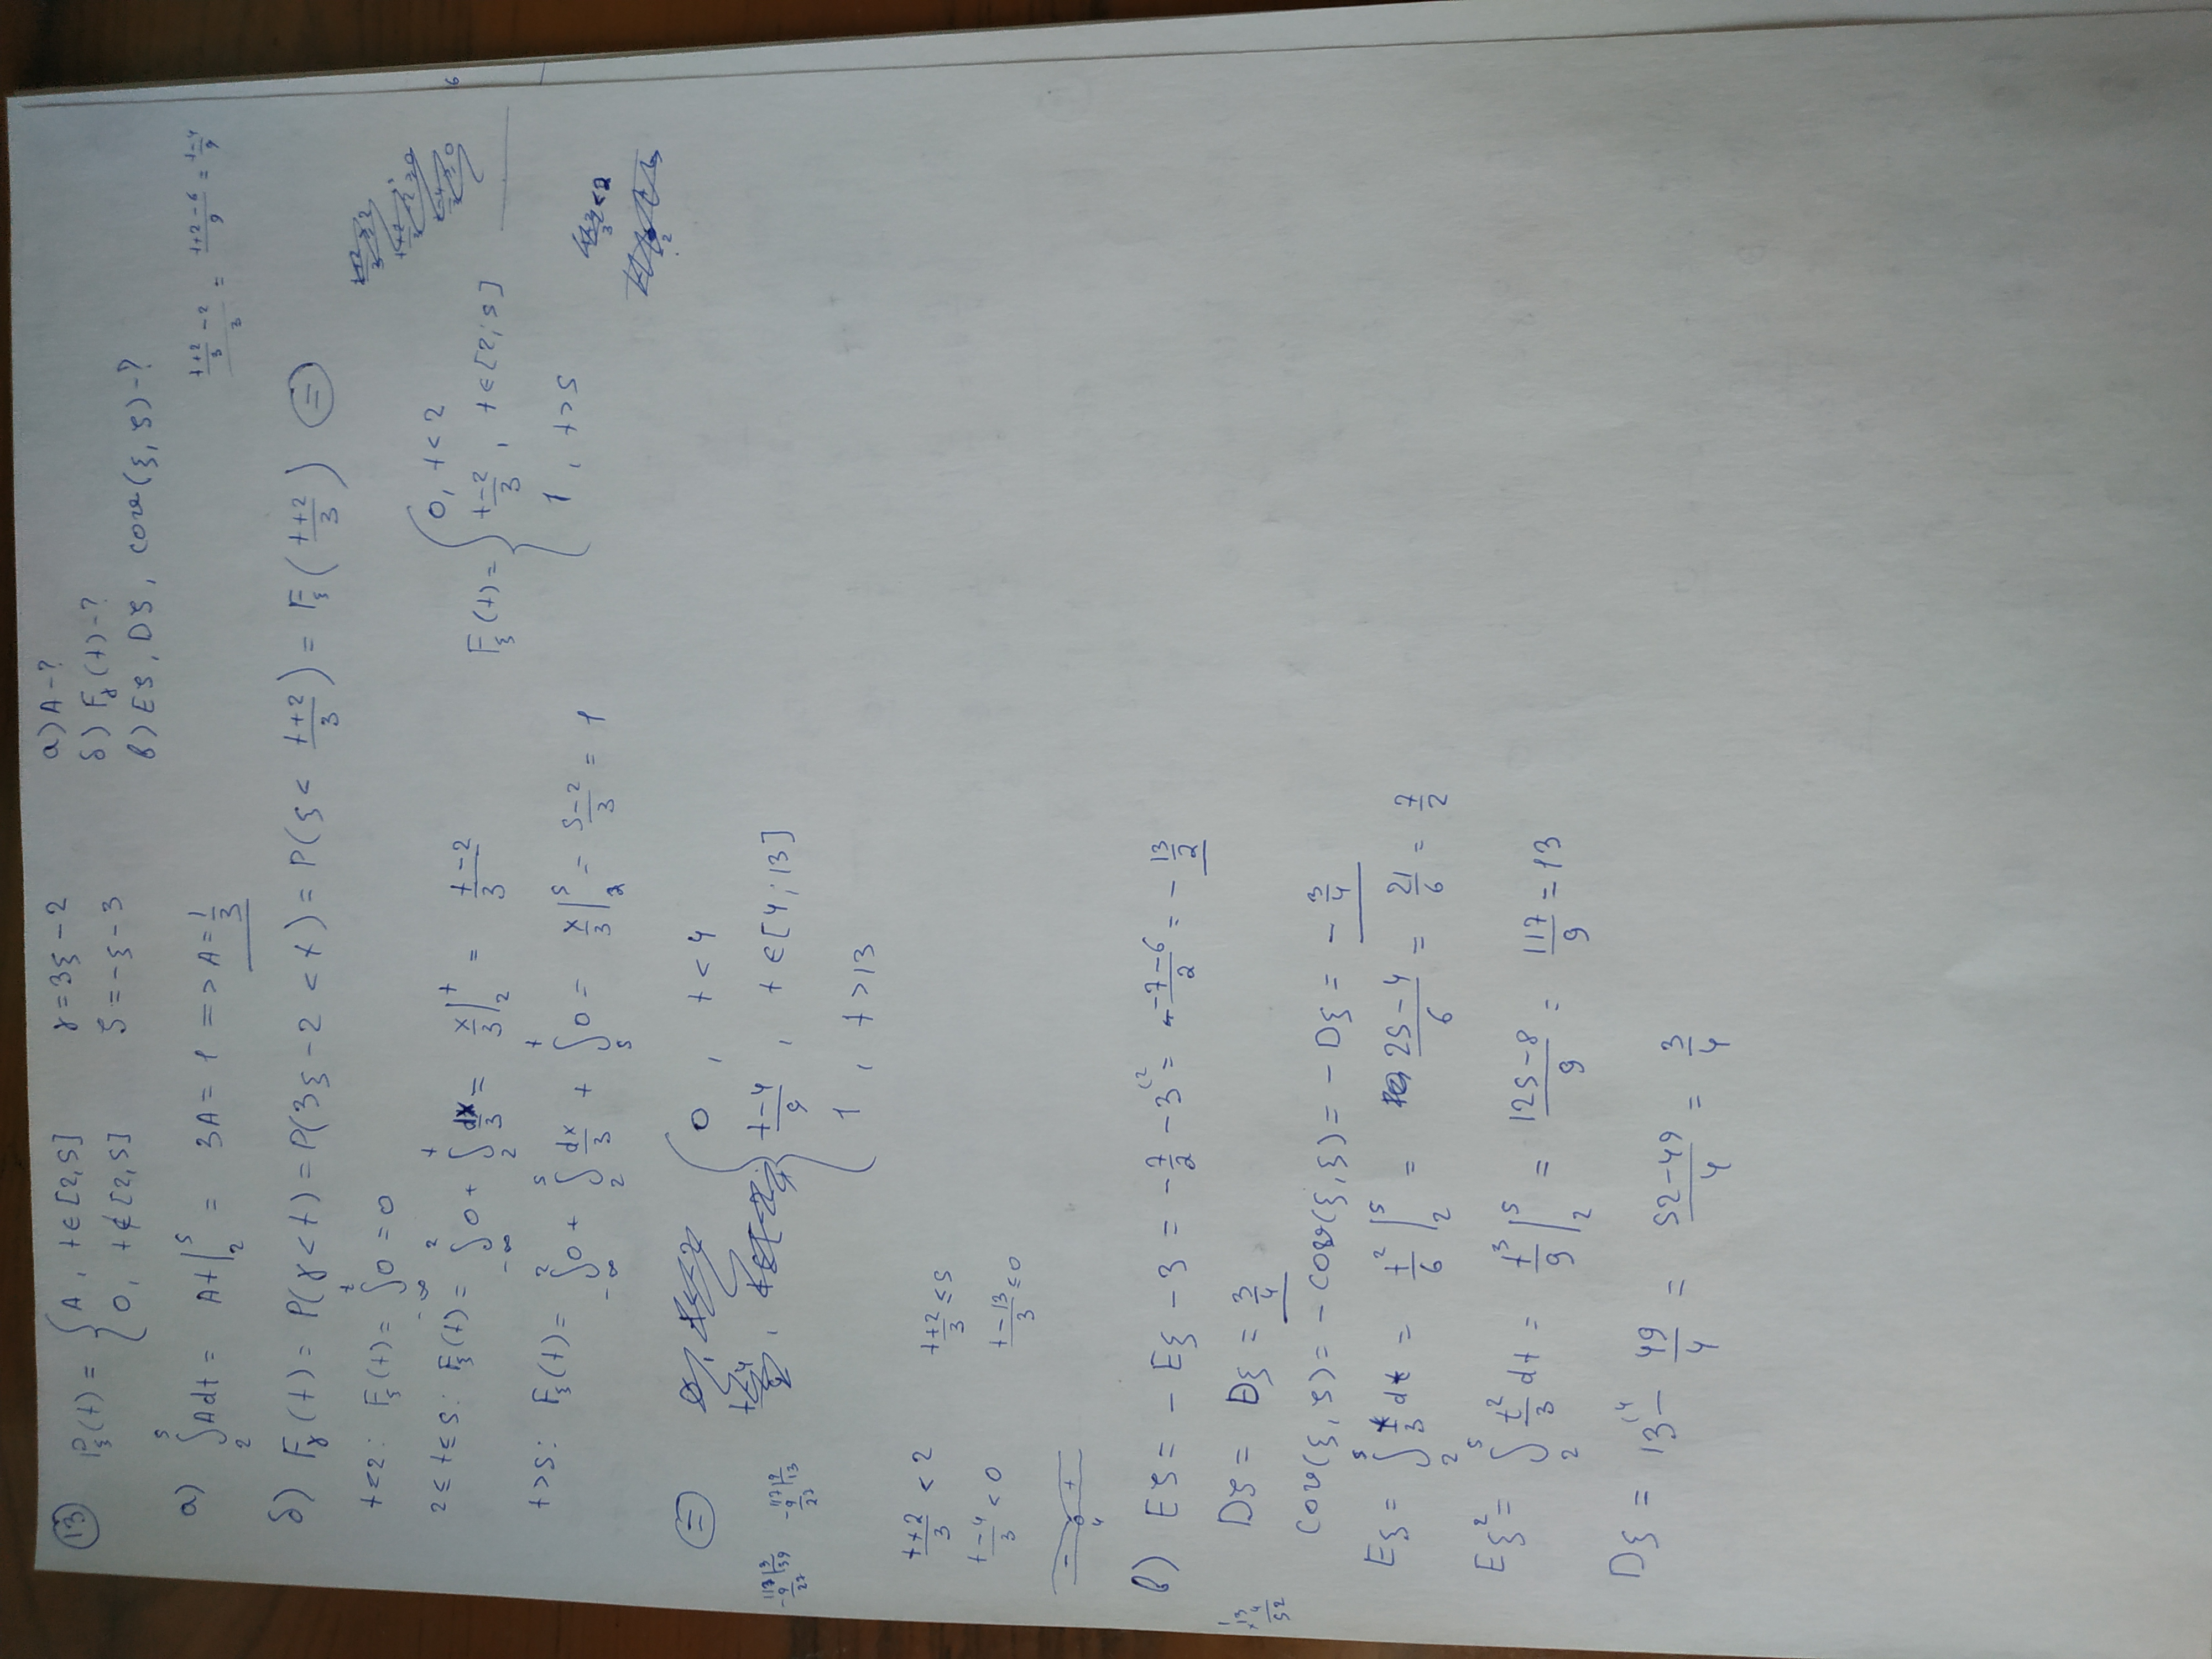 13
P_ξ(t) = { A, t∈[2,5]    γ = 3ξ - 2    а) A-?
0, t∉[2,5]    ζ = -ξ - 3    б) F_γ(t)-?
в) Eζ, Dζ, cov(ξ, ζ)-?
а) ∫_2^5 A dt = At|_2^5 = 3A = 1 => A = 1/3
((t+2)/3 - 2)/3 = (t+2-6)/9 = (t-4)/9
б) F_γ(t) = P(γ<t) = P(3ξ-2<t) = P(ξ < (t+2)/3) = F_ξ((t+2)/3) (=)
t<2: F_ξ(t) = ∫_{-∞}^t 0 = 0
2≤t≤5: F_ξ(t) = ∫_{-∞}^2 0 + ∫_2^t dx/3 = x/3|_2^t = (t-2)/3
t>5: F_ξ(t) = ∫_{-∞}^2 0 + ∫_2^5 dx/3 + ∫_5^t 0 = x/3|_2^5 = (5-2)/3 = 1
F_ξ(t) = { 0, t<2
(t-2)/3, t∈[2;5]
1, t>5
(=) { 0, t<4
(t-4)/9, t∈[4;13]
1, t>13
117 | 3
- 9 | 39
27
117 | 9
- 9 | 13
27
(t+2)/3 < 2    (t+2)/3 ≤ 5
(t-4)/3 < 0    (t-13)/3 ≤ 0
- +
4
в) Eζ = - Eξ - 3 = - 7/2 - 3^(2 = (-7-6)/2 = - 13/2
Dζ = Dξ = 3/4
×13
4
52
cov(ξ, ζ) = - cov(ξ, ξ) = - Dξ = - 3/4
Eξ = ∫_2^5 t/3 dt = t²/6|_2^5 = (25-4)/6 = 21/6 = 7/2
Eξ² = ∫_2^5 t²/3 dt = t³/9|_2^5 = (125-8)/9 = 117/9 = 13
Dξ = 13^(4 - 49/4 = (52-49)/4 = 3/4